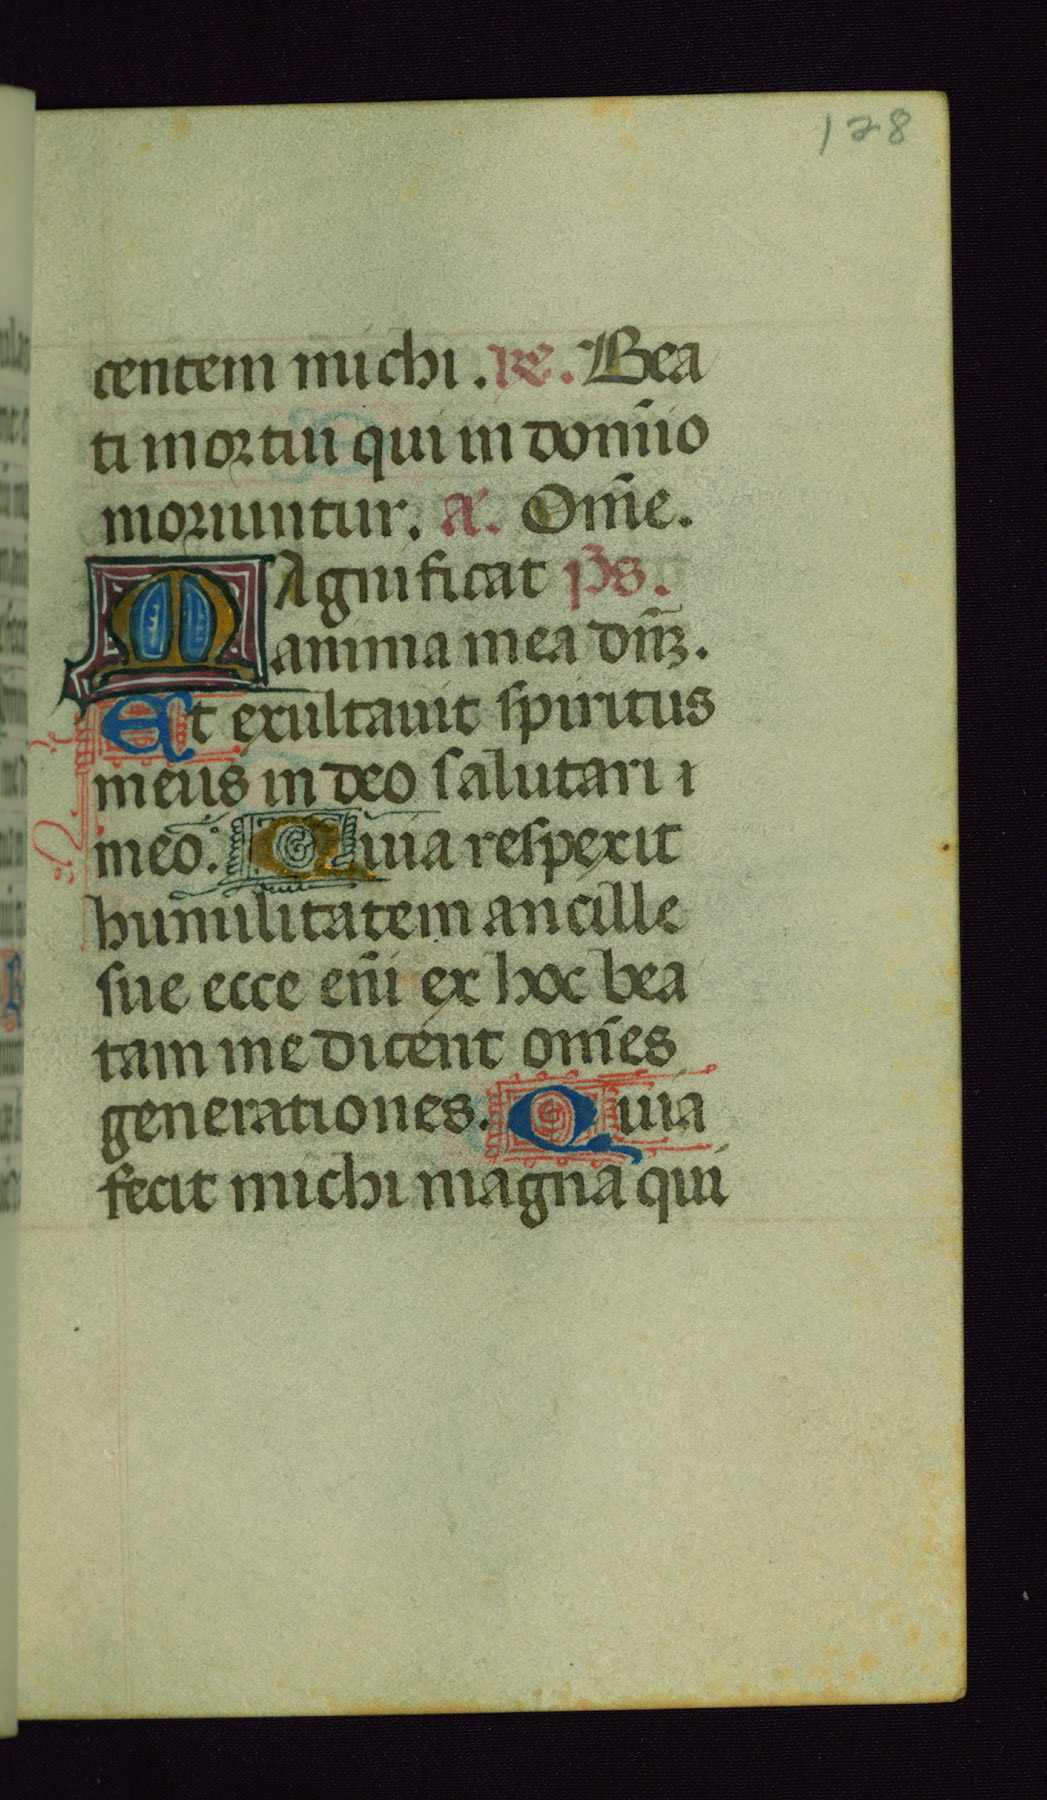 128
centem michi. re. Bea
ti mortui qui in dom̄io
moriuntur. a. Om̄e.
Magnificat ps̄.
anima mea dn̄ꝫ.
Et exultauit spiritus
meus in deo salutari i
meo. Quia respexit
humilitatem ancille
sue ecce eni̅ ex hoc bea
tam me dicent om̄es
generationes. Quia
fecit michi magna qui